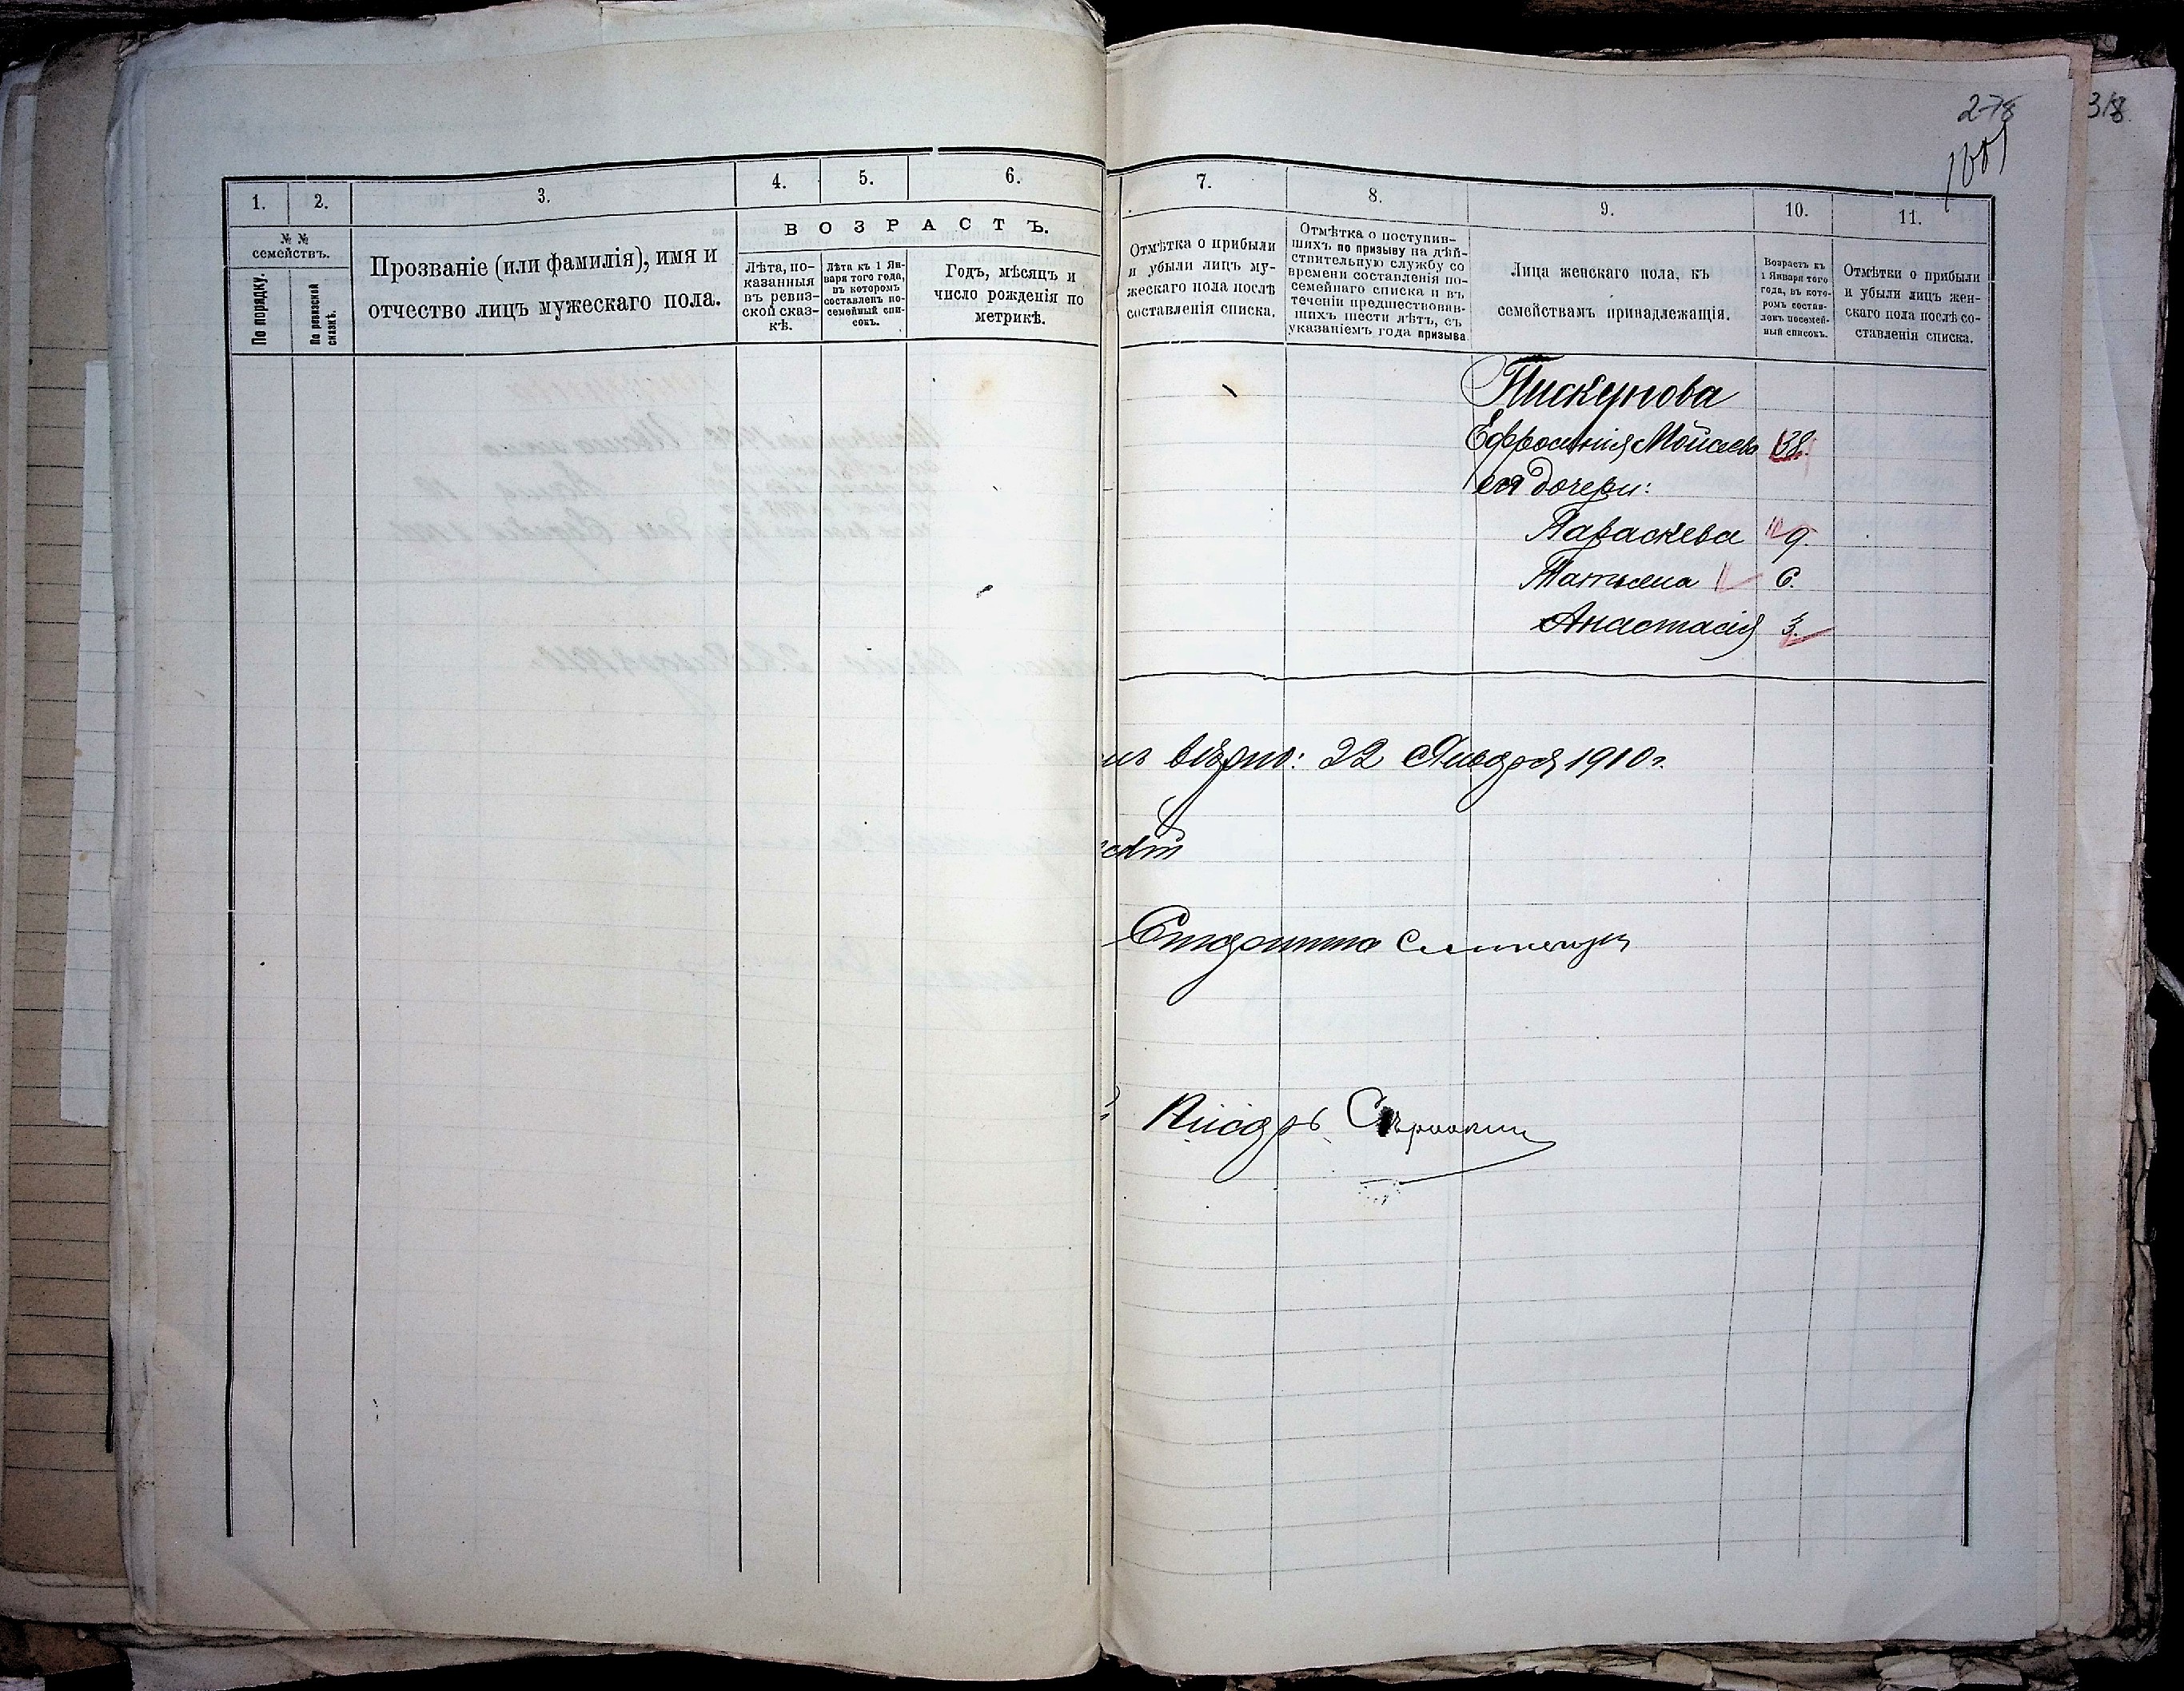 278
318
1001
1.
2.
3.
4.
5.
6.
№ №
семействъ.
По порядку.
По ревизской
сказкѣ.
Прозваніе (или фамилія), имя и
отчество лицъ мужескаго пола.
ВОЗРАСТЪ.
Лѣта, по-
казанныя
въ ревиз-
ской сказ-
кѣ.
Лѣта къ 1 Ян-
варя того года,
въ которомъ
составленъ по-
семейный спи-
сокъ.
Годъ, мѣсяцъ и
число рожденія по
метрикѣ.
7.
8.
9.
10.
11.
Отмѣтка о прибыли
и убыли лицъ му-
жескаго пола послѣ
составленія списка.
Отмѣтка о поступив-
шихъ по призыву на дѣй-
ствительную службу со
времени составленія по-
семейнаго списка и въ
теченіи предшествовав-
шихъ шести лѣтъ, съ
указаніемъ года призыва
Лица женскаго пола, къ
семействамъ принадлежащія.
Возрастъ къ
1 Января того
года, въ кото-
ромъ состав-
ленъ посемей-
ный списокъ.
Отмѣтки о прибыли
и убыли лицъ жен-
скаго пола послѣ со-
ставленія списка.
Пискунова
Ефросинія Моисеева 38.
ея дочери:
Параскева 9.
Татьяна 6.
Анастасія 3.
вѣрно: 22 Января 1910 г.
Старшина
Писарь